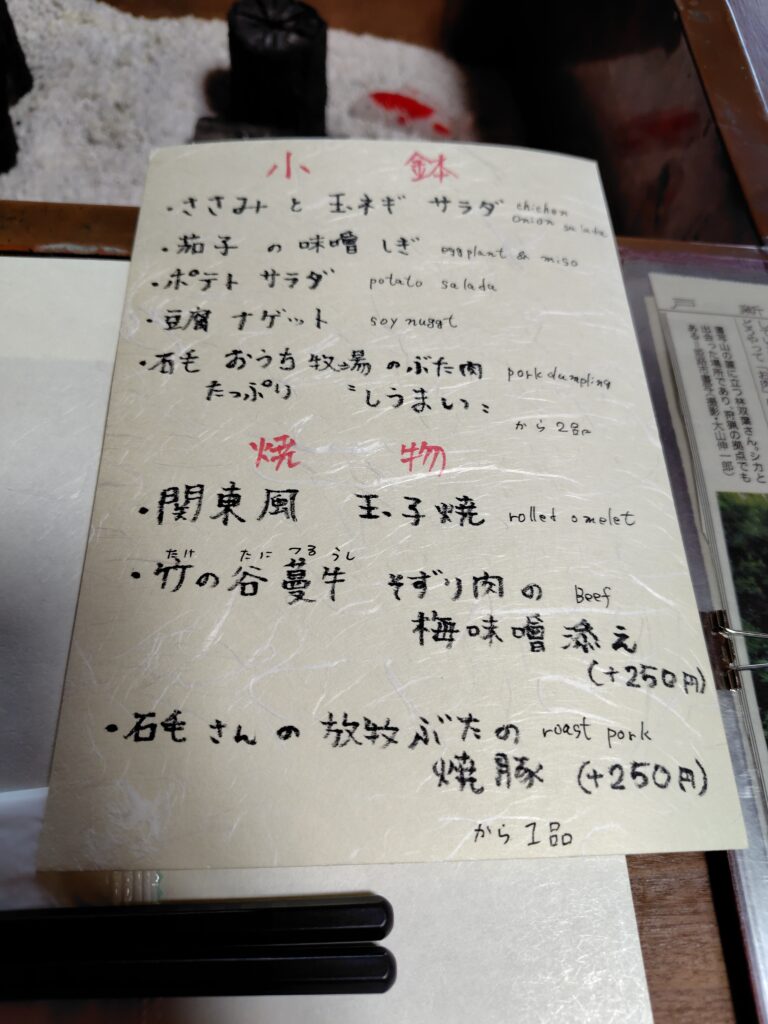 小鉢
・ささみ と 玉ネギ サラダ chichen
onion salada
・茄子 の 味噌 しぎ eggplant & miso
・ポテト サラダ potato salada
・豆腐 ナゲット soy nuggt
・石毛 おうち 牧場 のぶた肉 pork dumpling
たっぷり "しうまい"
から 2品
焼物
・関東風 玉子焼 rollet omelet
たけ たに つる うし
・竹の谷蔓牛 そずり肉 の Beef
梅味噌添え
(+250円)
・石毛さんの放牧ぶたの roast pork
焼豚 (+250円)
から 1品
戸 新